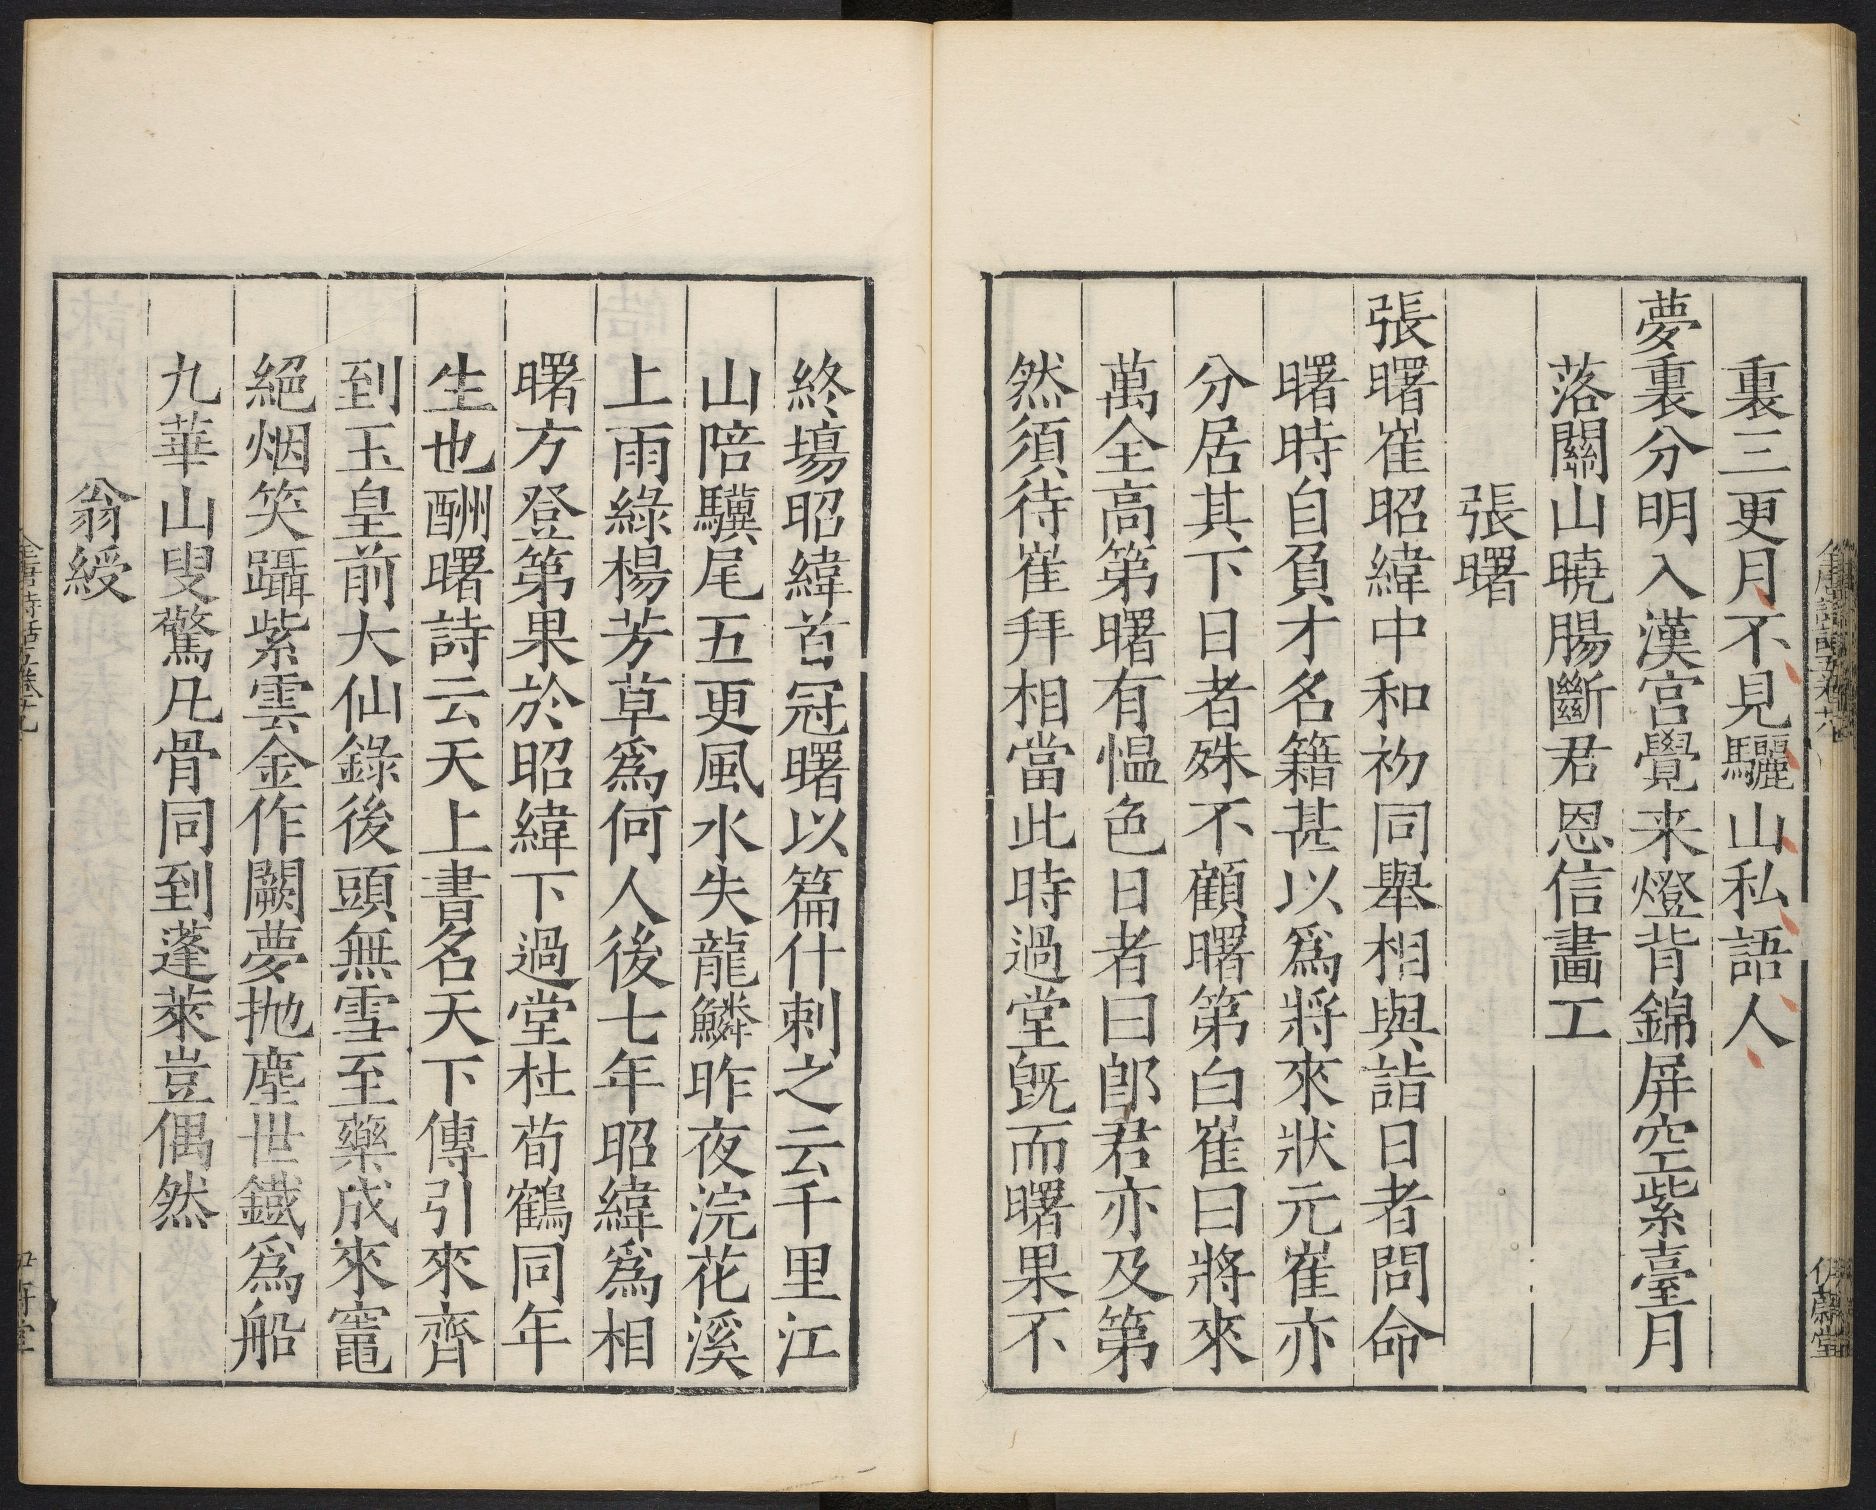 裏三更月不見驪山私語人
夢裏分明入漢宮覺来燈背錦屏空紫臺月
落關山曉腸斷君恩信畵工
張曙
張曙崔昭緯中和初同舉相與詣日者問命
曙時自負才名籍甚以爲將來狀元崔亦
分居其下日者殊不顧曙第白崔曰將來
萬全高第曙有愠色日者曰郎君亦及第
然須待崔拜相當此時過堂旣而曙果不
終塲昭緯首冠曙以篇什刺之云千里江
山陪驥尾五更風水失龍鱗昨夜浣花溪
上雨綠楊芳草爲何人後七年昭緯爲相
曙方登第果於昭緯下過堂杜荀鶴同年
生也酬曙詩云天上書名天下傳引來齊
到玉皇前大仙錄後頭無雪至藥成來竈
絕烟笑躡紫雲金作闕夢抛塵世鐵爲船
九華山叟驚凡骨同到蓬萊豈偶然
翁綬